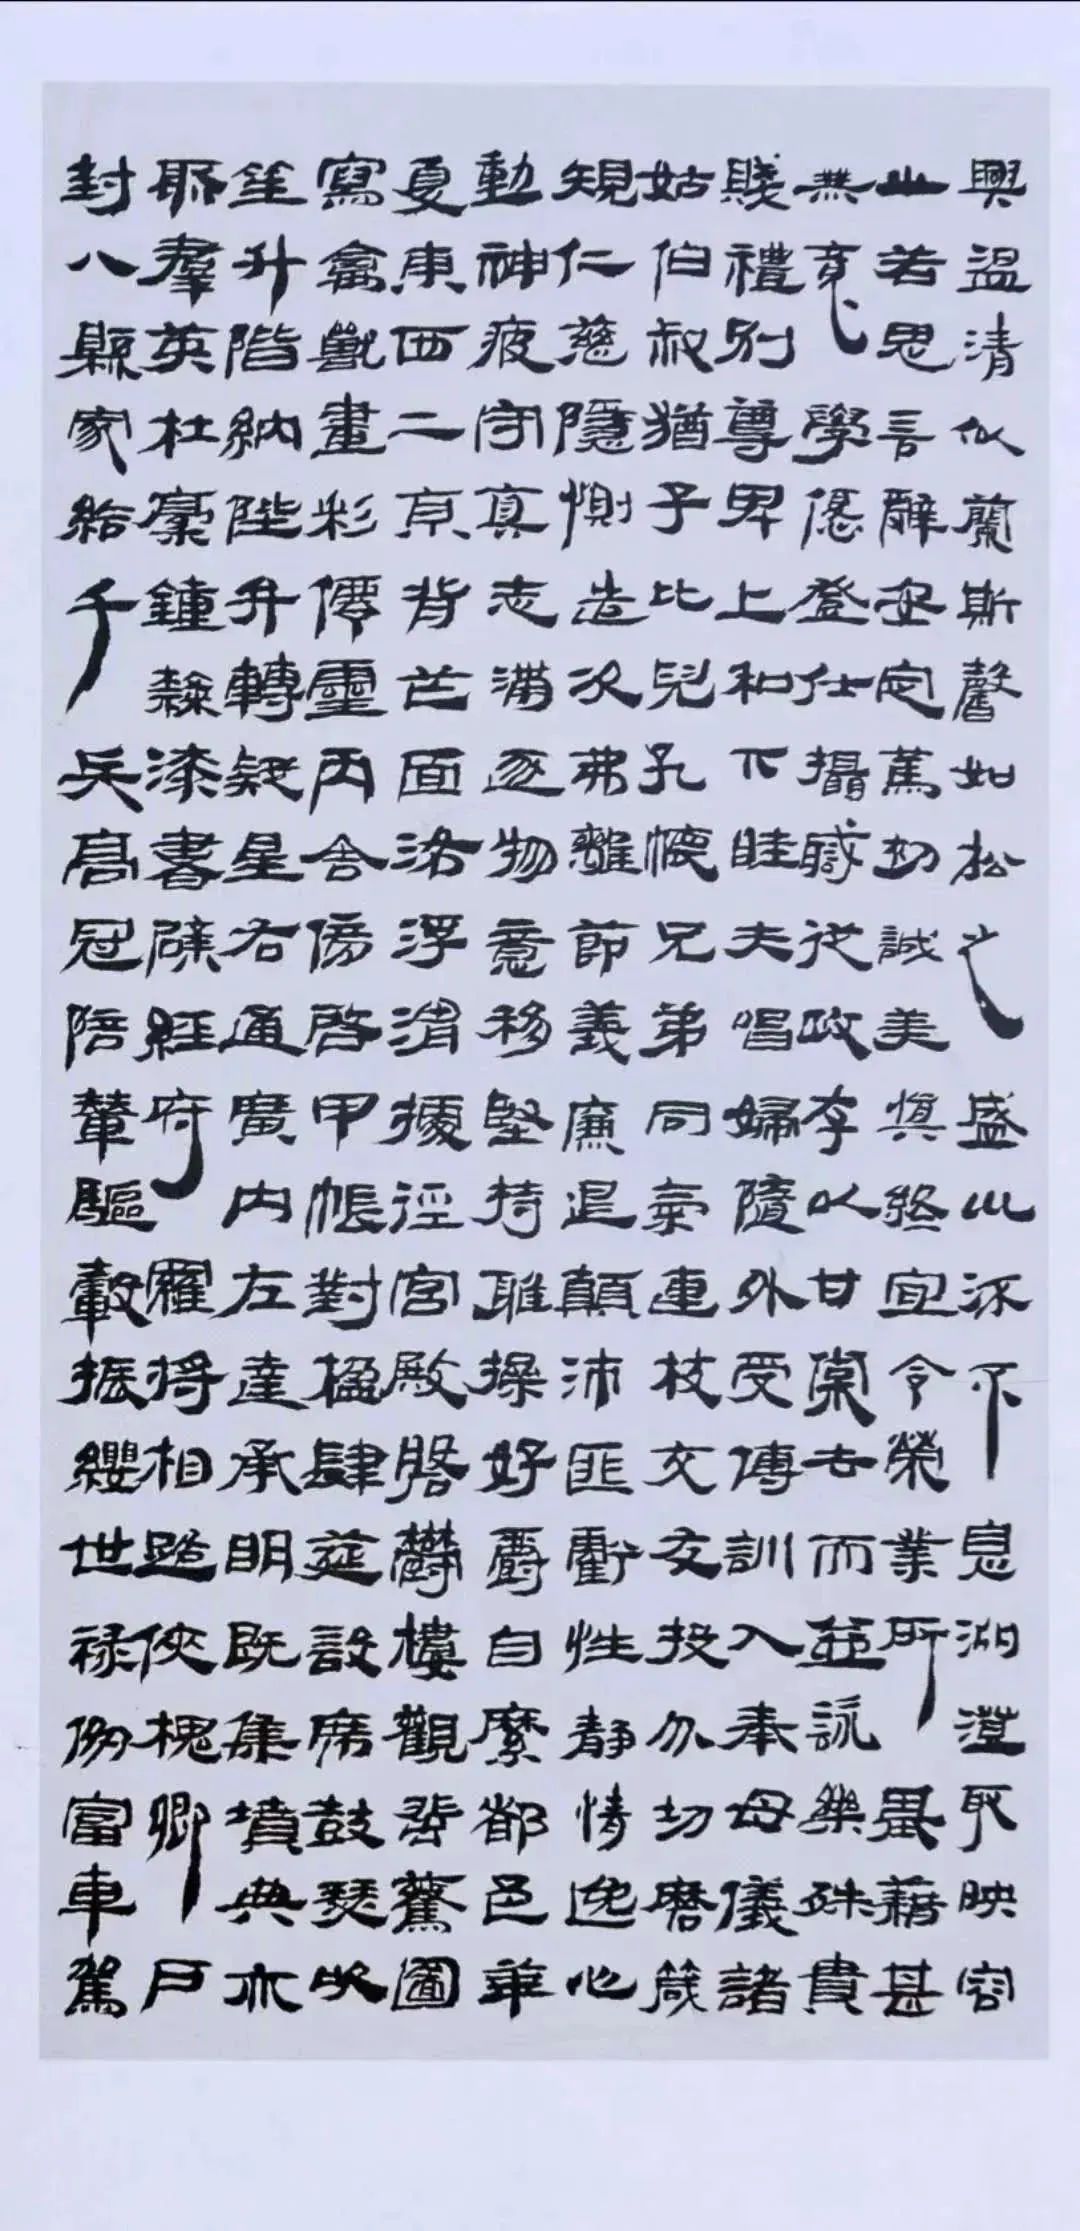 興溫清似蘭斯馨如松之盛川流不息淵澄取映容
止若思言辭安定篤初誠美慎終宜令榮業所基藉甚
無竟學優登仕攝職從政存以甘棠去而益詠樂殊貴
賤禮別尊卑上和下睦夫唱婦隨外受傅訓入奉母儀諸
姑伯叔猶子比兒孔懷兄弟同氣連枝交友投分切磨箴
規仁慈隱惻造次弗離節義廉退顛沛匪虧性靜情逸心
動神疲守真志滿逐物意移堅持雅操好爵自縻都邑華
夏東西二京背芒面洛浮渭據涇宮殿盤鬱樓觀飛驚圖
寫禽獸畫彩僊靈丙舍傍啟甲帳對楹肆筵設席鼓瑟吹
笙升階納陛弁轉疑星右通廣內左達承明既集墳典亦
聚羣英杜稾鍾隸漆書壁經府羅將相路俠槐卿戶
封八縣家給千兵高冠陪輦驅轂振纓世祿侈富車駕